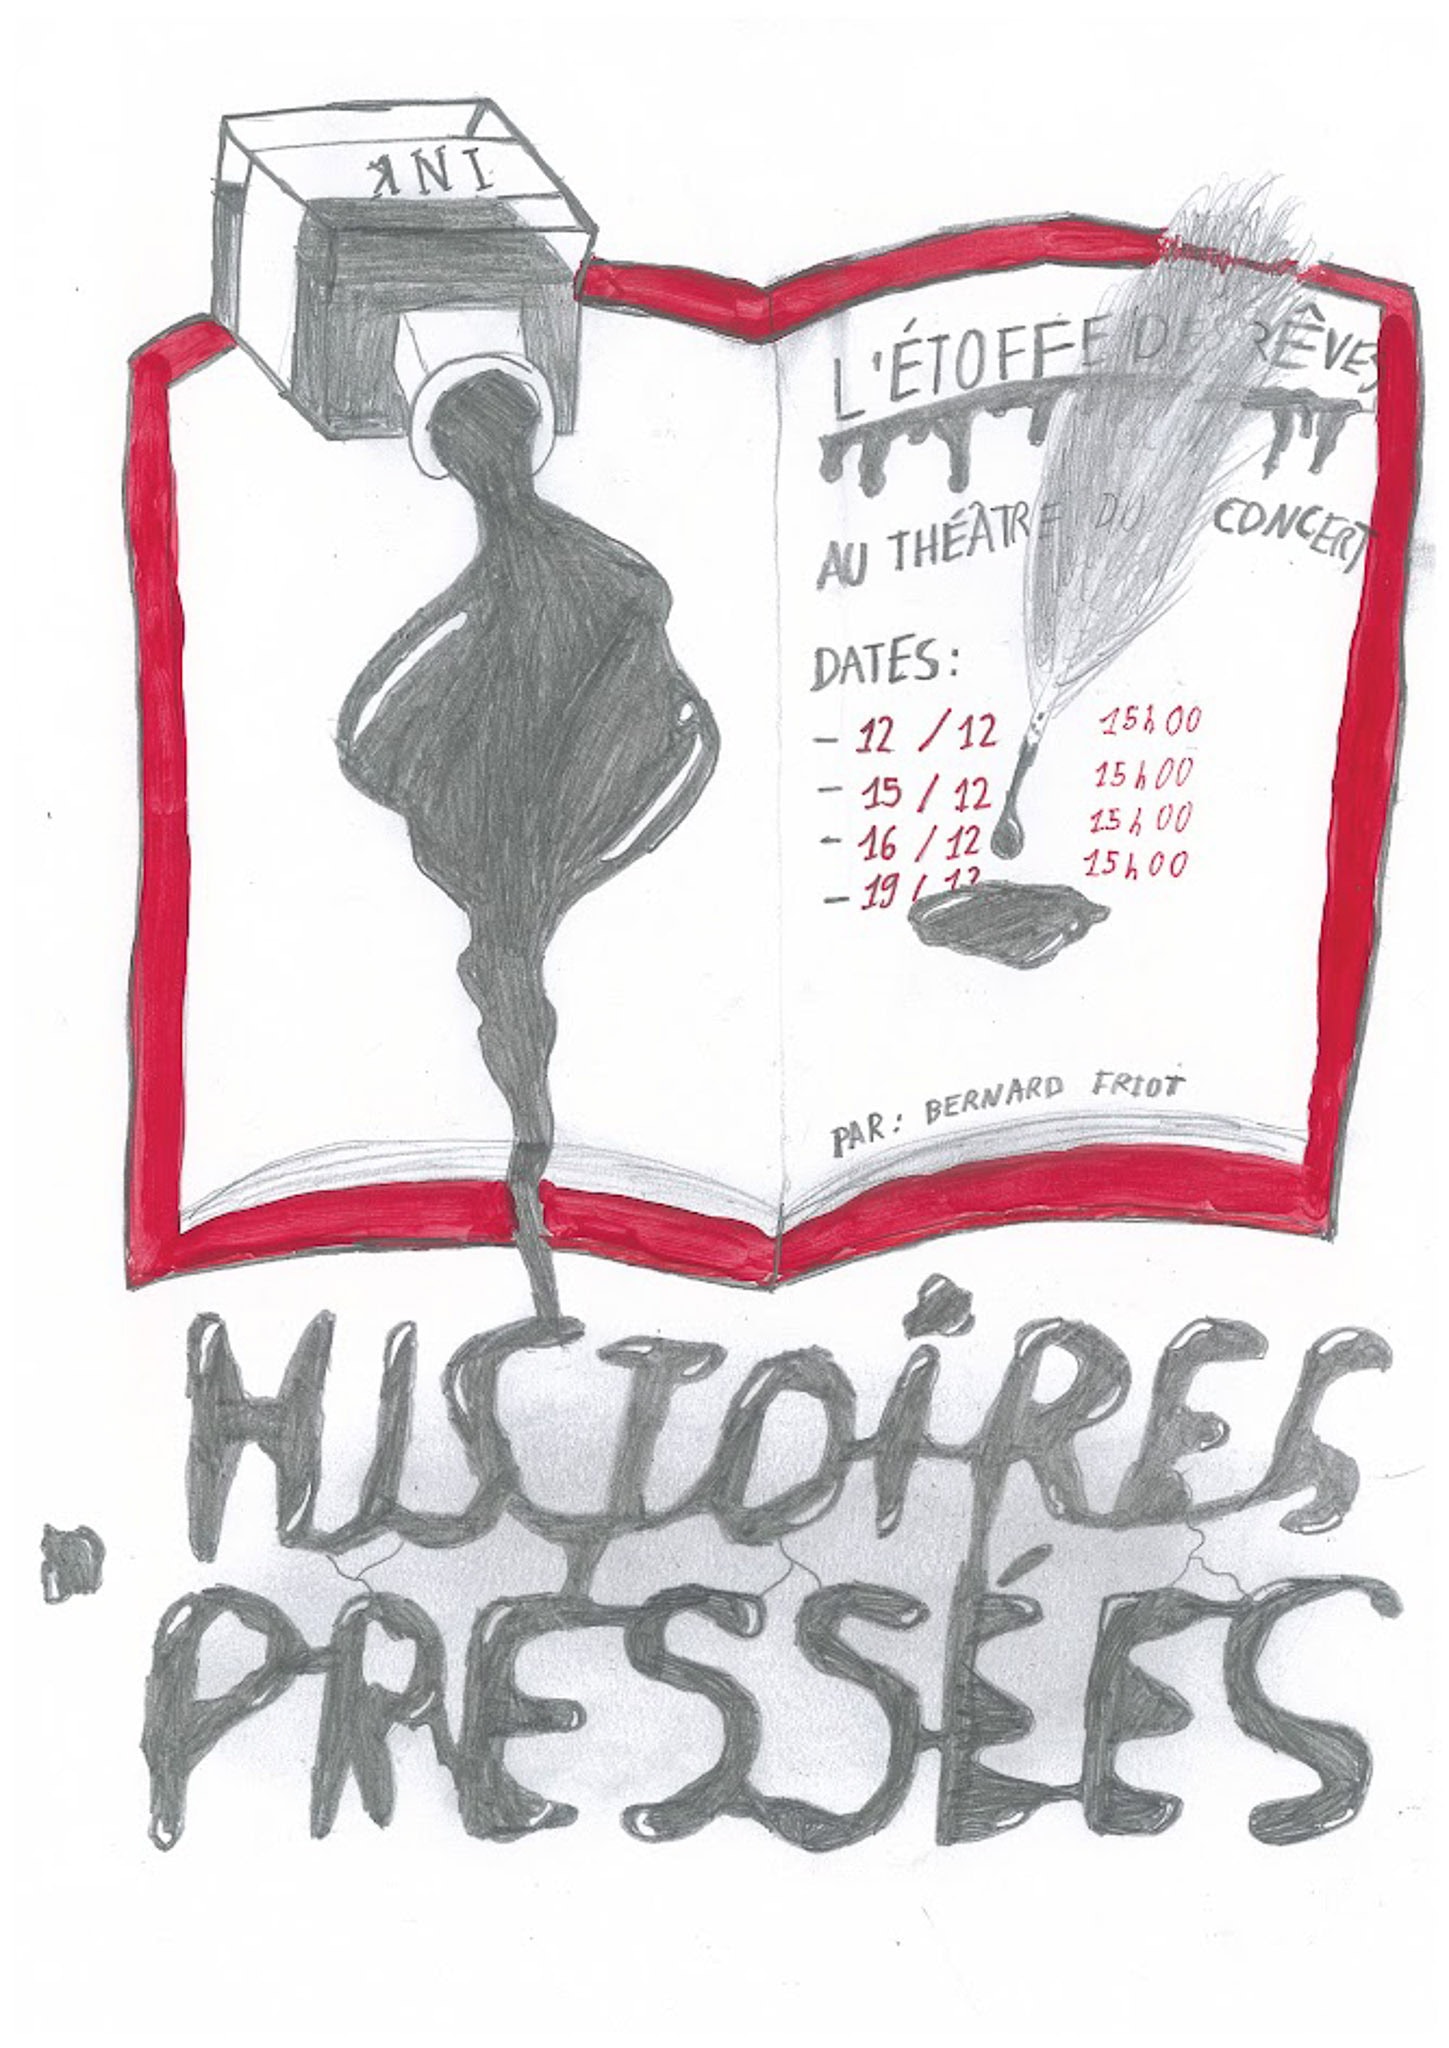 INK
L'ÉTOFFE DES RÊVES
AU THÉÂTRE DU CONCERT
DATES:
- 12 / 12 15h00
- 15 / 12 15h00
- 16 / 12 15h00
- 19 / 12 15h00
PAR: BERNARD FRIOT
HISTOIRES
PRESSÉES